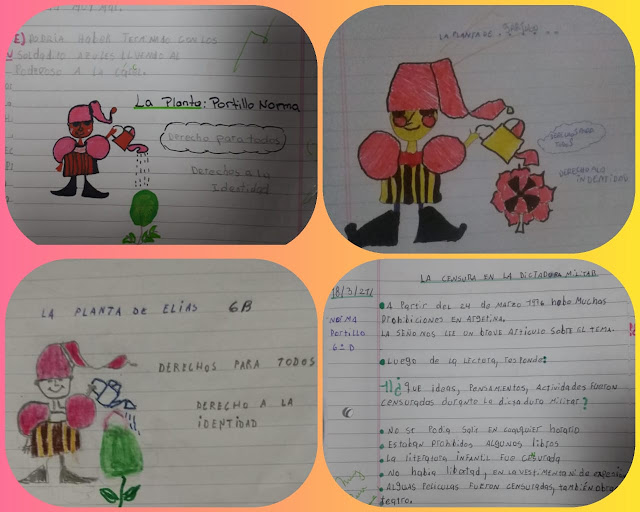 E) PODRÍA HABER TERMINADO CON LOS
SOLDADITOS AZULES LLEVANDO AL
PODEROSO A LA CÁRCEL.
La Planta: Portillo Norma
Derecho para todos
Derechos a la
Identidad
LA PLANTA DE
TODOS
DERECHO A LA
INDENTIDAD
LA PLANTA DE ELIAS 6B
DERECHOS PARA TODOS
DERECHO A LA
IDENTIDAD
LA CENSURA EN LA DICTADURA MILITAR
18/3/21
NORMA
Portillo
6º D
A Partir del 24 de MARZO 1976 hobo Muchos
Prohibiciones en Argetina.
LA SEÑO NOS LEE UN breve Artículo SObre EL TEMA.
Luego de la Lectora, responde:
1) ¿Que ideas, Pensamentos, Actividades Fueron
censuradas durante la dictadura Militar?
No se Podía Salir en cualquier horario
Estaban Prohibidos Algunos libros
La literatura INFANTIL Fue Cesurada
No había libertad, en la vestimenta ni de expresión
Algunas Películas Fueron censuradas, también obras
teatro.